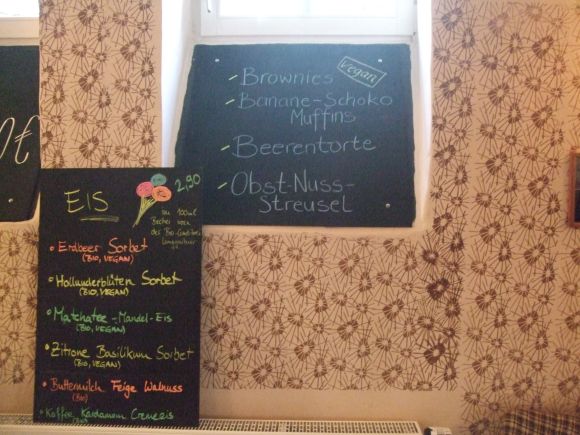 Brownies
vegan
Banane-Schoko
Muffins
Beerentorte
Obst-Nuss-
Streusel
0€
EIS
2,90
im 100ml
Becher von
der Bio-
• Erdbeer Sorbet
(BIO, VEGAN)
• Hollunderblüten Sorbet
(BIO, VEGAN)
• Matchatee-Mandel-Eis
(BIO, VEGAN)
• Zitrone Basilikum Sorbet
(BIO, VEGAN)
• Buttermilch Feige Walnuss
(Bio)
• Kaffee Kardamom Cremeeis